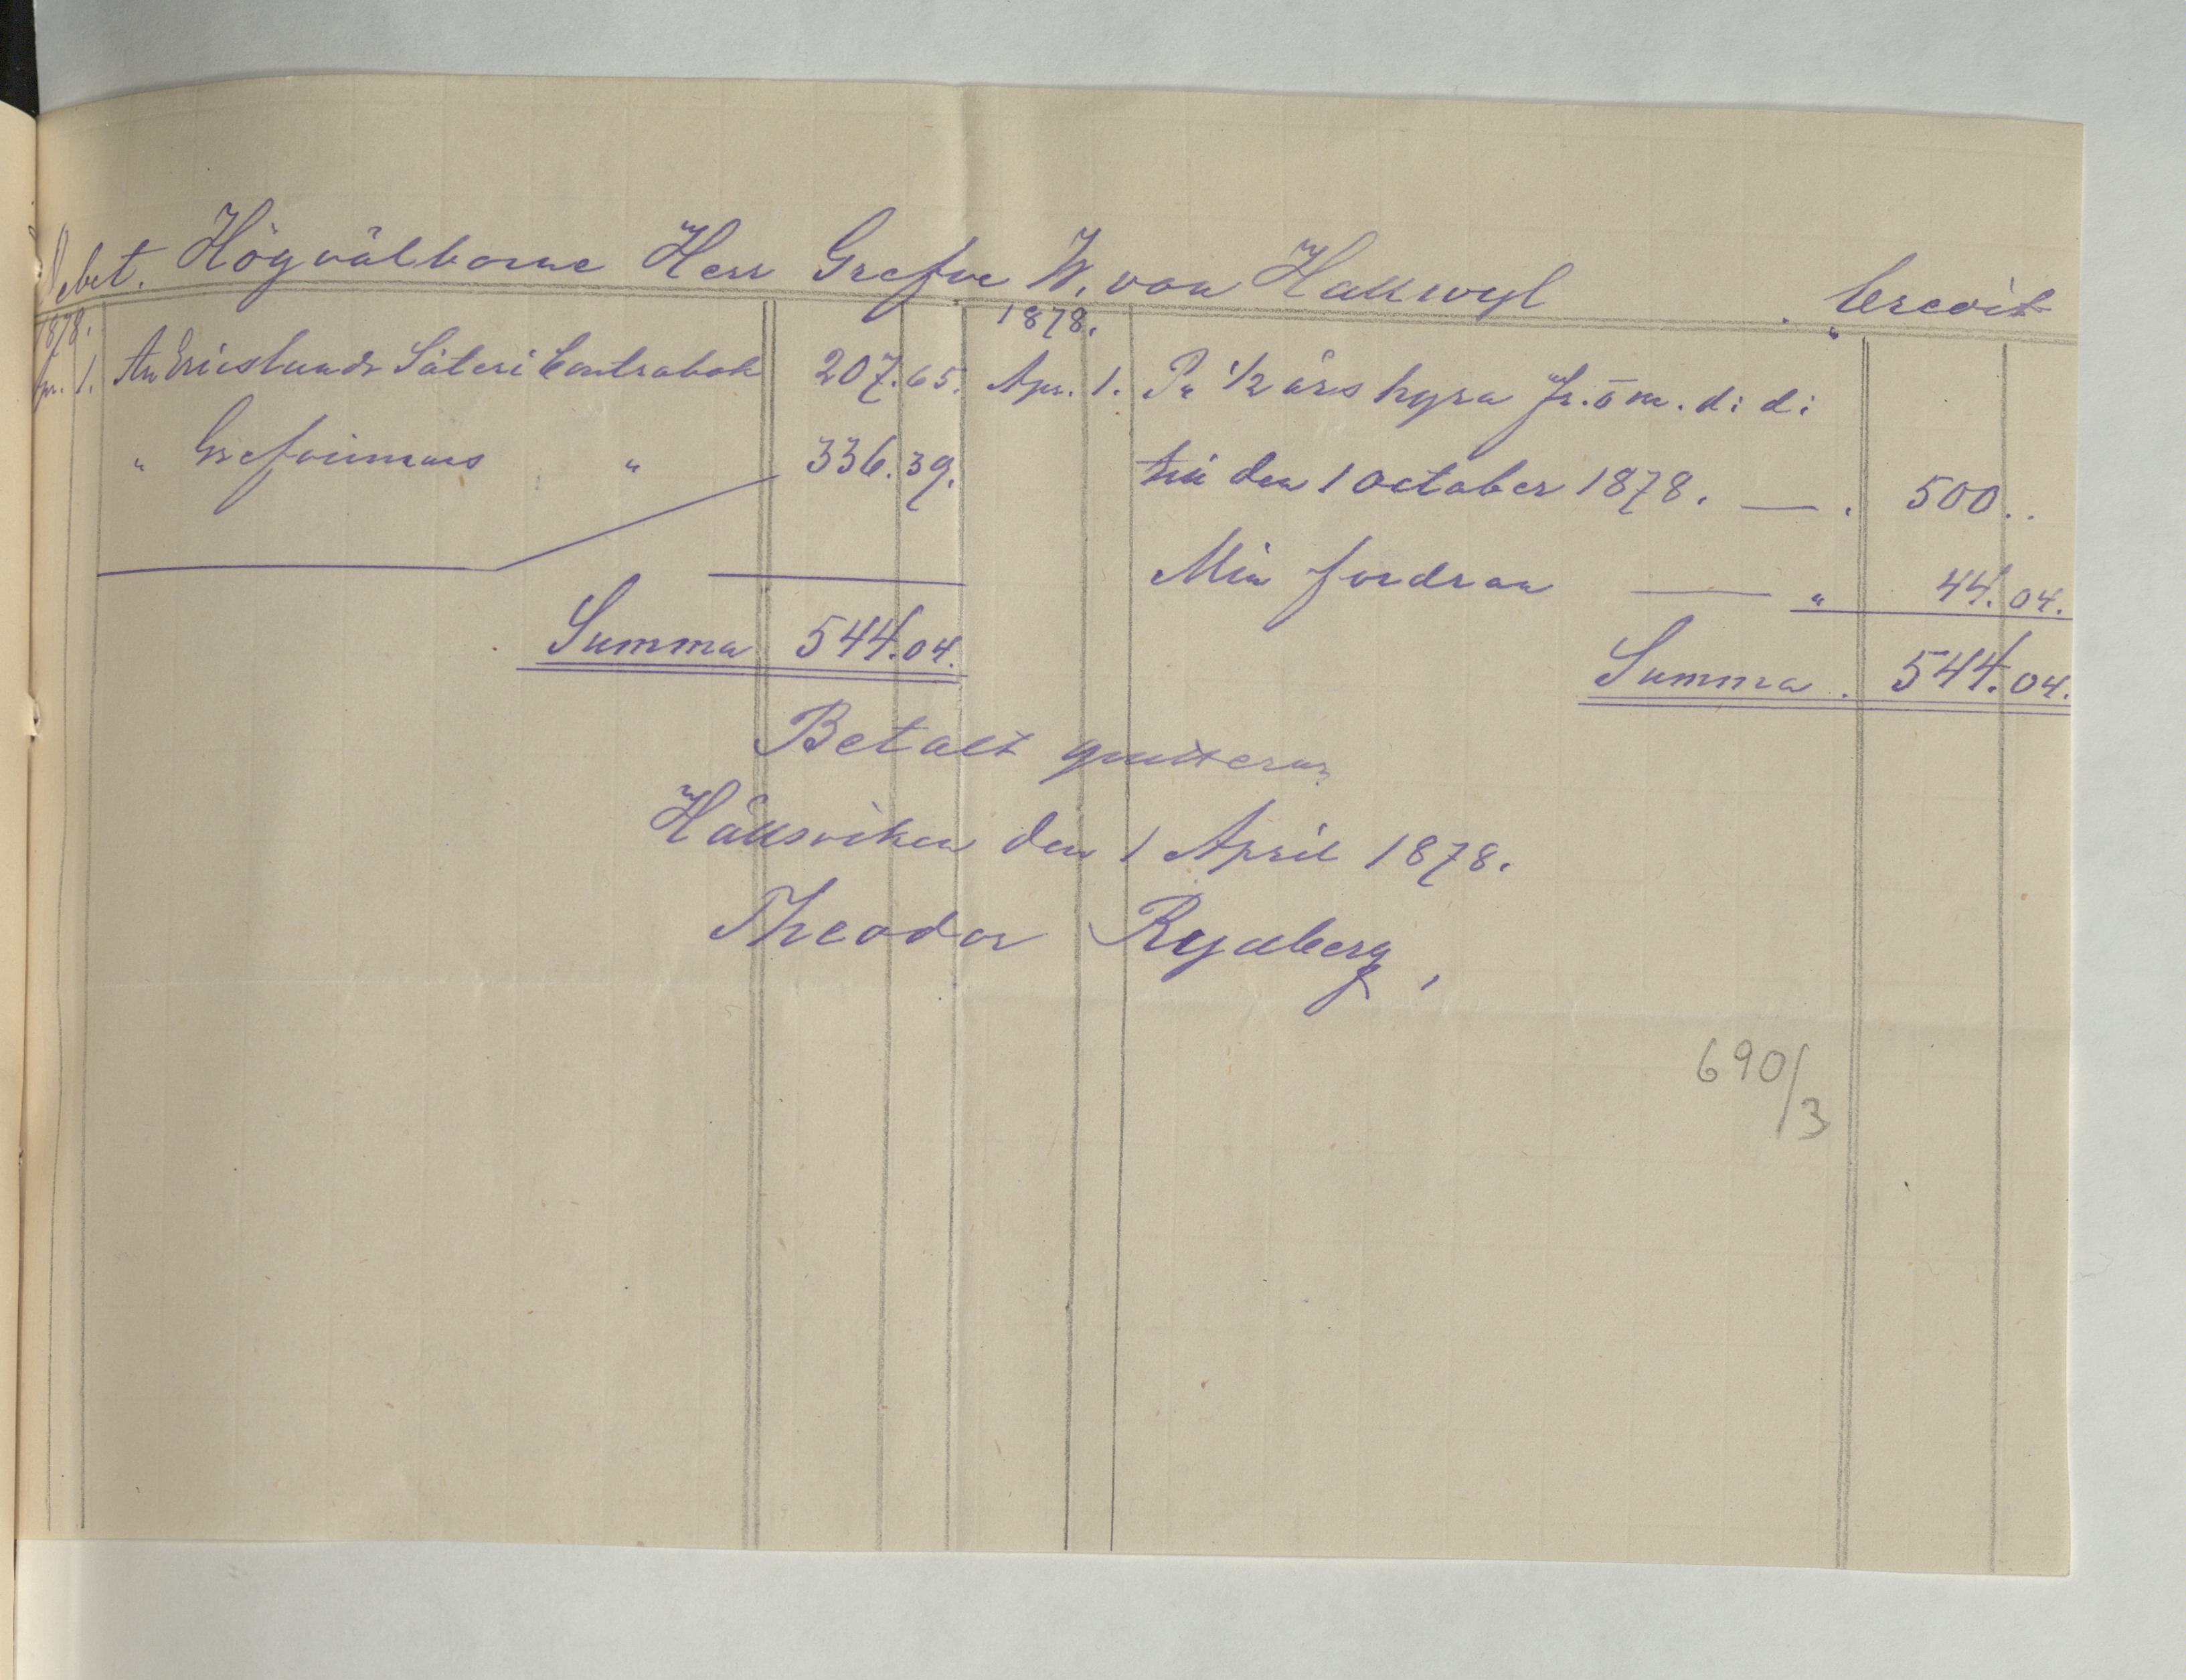 Debet. Högvälborne Herr Grefve W. von Hallwyl Credit
1878.
Apr. 1. An Ericslunds Säteri Contrabok 207.65.
" Grefvinnans " 336.39.
Summa 544.04.
1878.
Apr. 1. Pr 1/2 års hyra fr. o m. d: d:
till den 1 October 1878. — . 500..
Min fordran — " 44.04.
Summa . 544.04.
Betalt qvitteras
Hällsviken den 1 April 1878.
Theodor Rydberg,
690/3